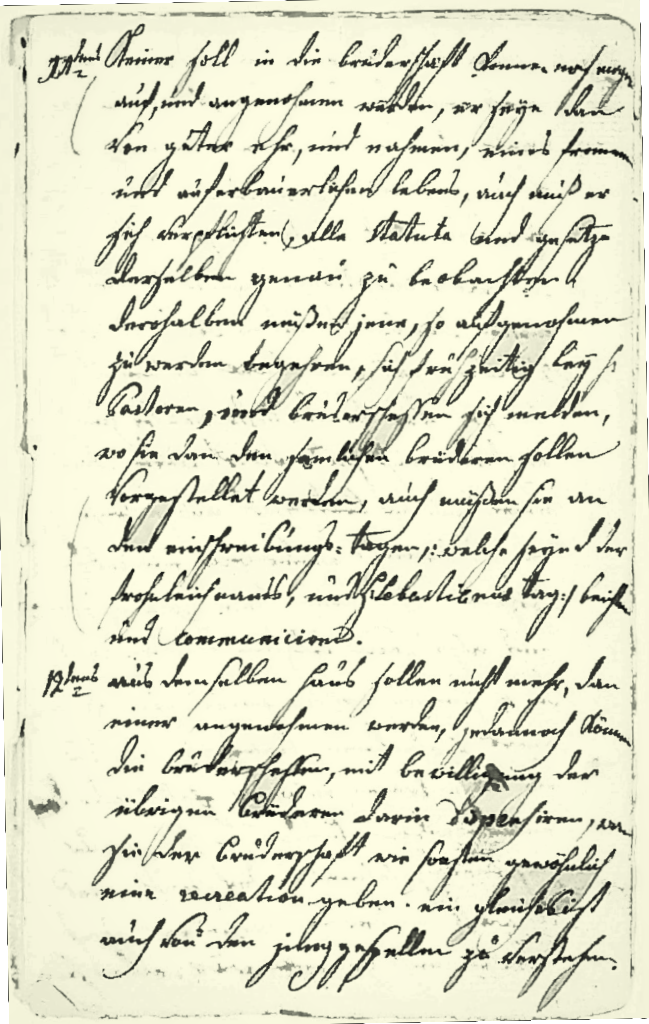 11tens Keiner soll in die bruderschaft konnen noch mogen
auf, und angenohmen werden, er seye dan
von guter ehr, und nahmen, eines fromen
und auferbauerlichen lebens, auch muß er
sich verpflichten, alle Statuta und gesetze
derselben genau zu beobachten.
derohalben müßen jene, so aufgenohmen
zu werden begehren, sich fruhzeitig bey H:
Pastoren, und bruderscheffen sich melden,
wo sie dan den sämlichen bruderen sollen
vorgestellet werden, auch müßen sie an
den einschreibungs: tagen /: welche seynd der
frohnleichnams, und Sebastianus tag :/ beichten
und communiciren.
12tens aus demselben haus sollen nicht mehr, dan
einer angenohmen werden, jedannoch können
die bruderscheffen, mit bewilligung der
übrigen brüderen darin dispensiren, wan
sie der bruderschaft wie sonsten gewöhnlich
eine recreation geben. ein gleiches ist
auch von den junggesellen zu verstehen.